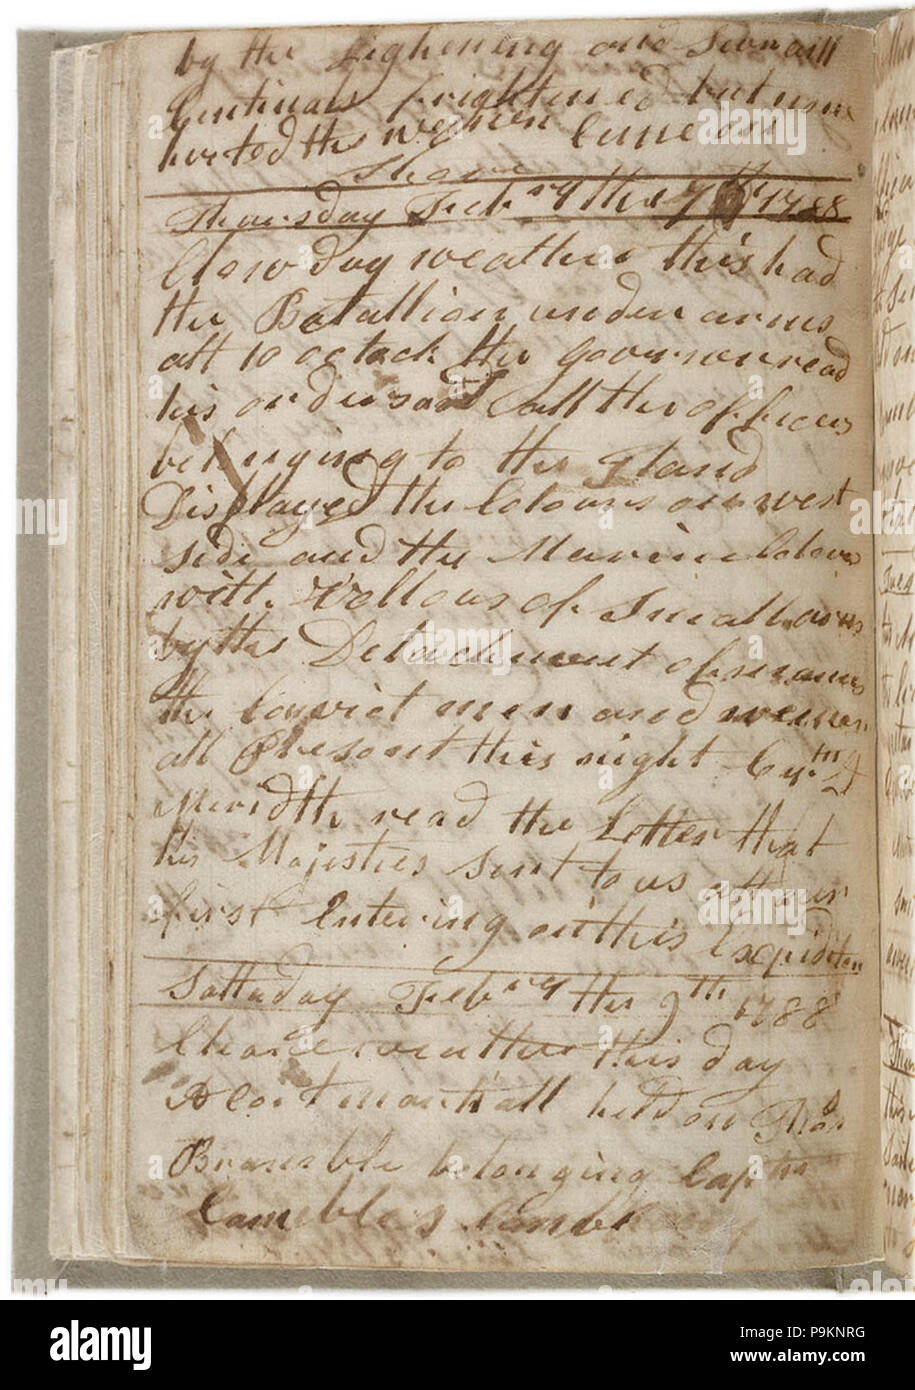 by the Lightening and Severall
Centinals frightened but none
hurted the women Came on
Shore
Thursday Febry the 7th 1788
this had
the Batallion under arms
att 10 oclock the Governer read
his orders and all the officers
belonging to the Iland
Displayed the Colours on west
side and the Marine Colours
with Vollous of Small arms
by the Detachment of marines
the Convict men and women
all Present this night Cyptn
Meridth read the Letter that
his Majesties Sent to us att our
first Entering on this Expidition
Sattaday Febry the 9th 1788
Cleare weather this day
A Cort martiall held on Thos
Bramble belonging Captn
Cambles Company
alamy
alamy
Image ID: P9KNRG
www.alamy.com